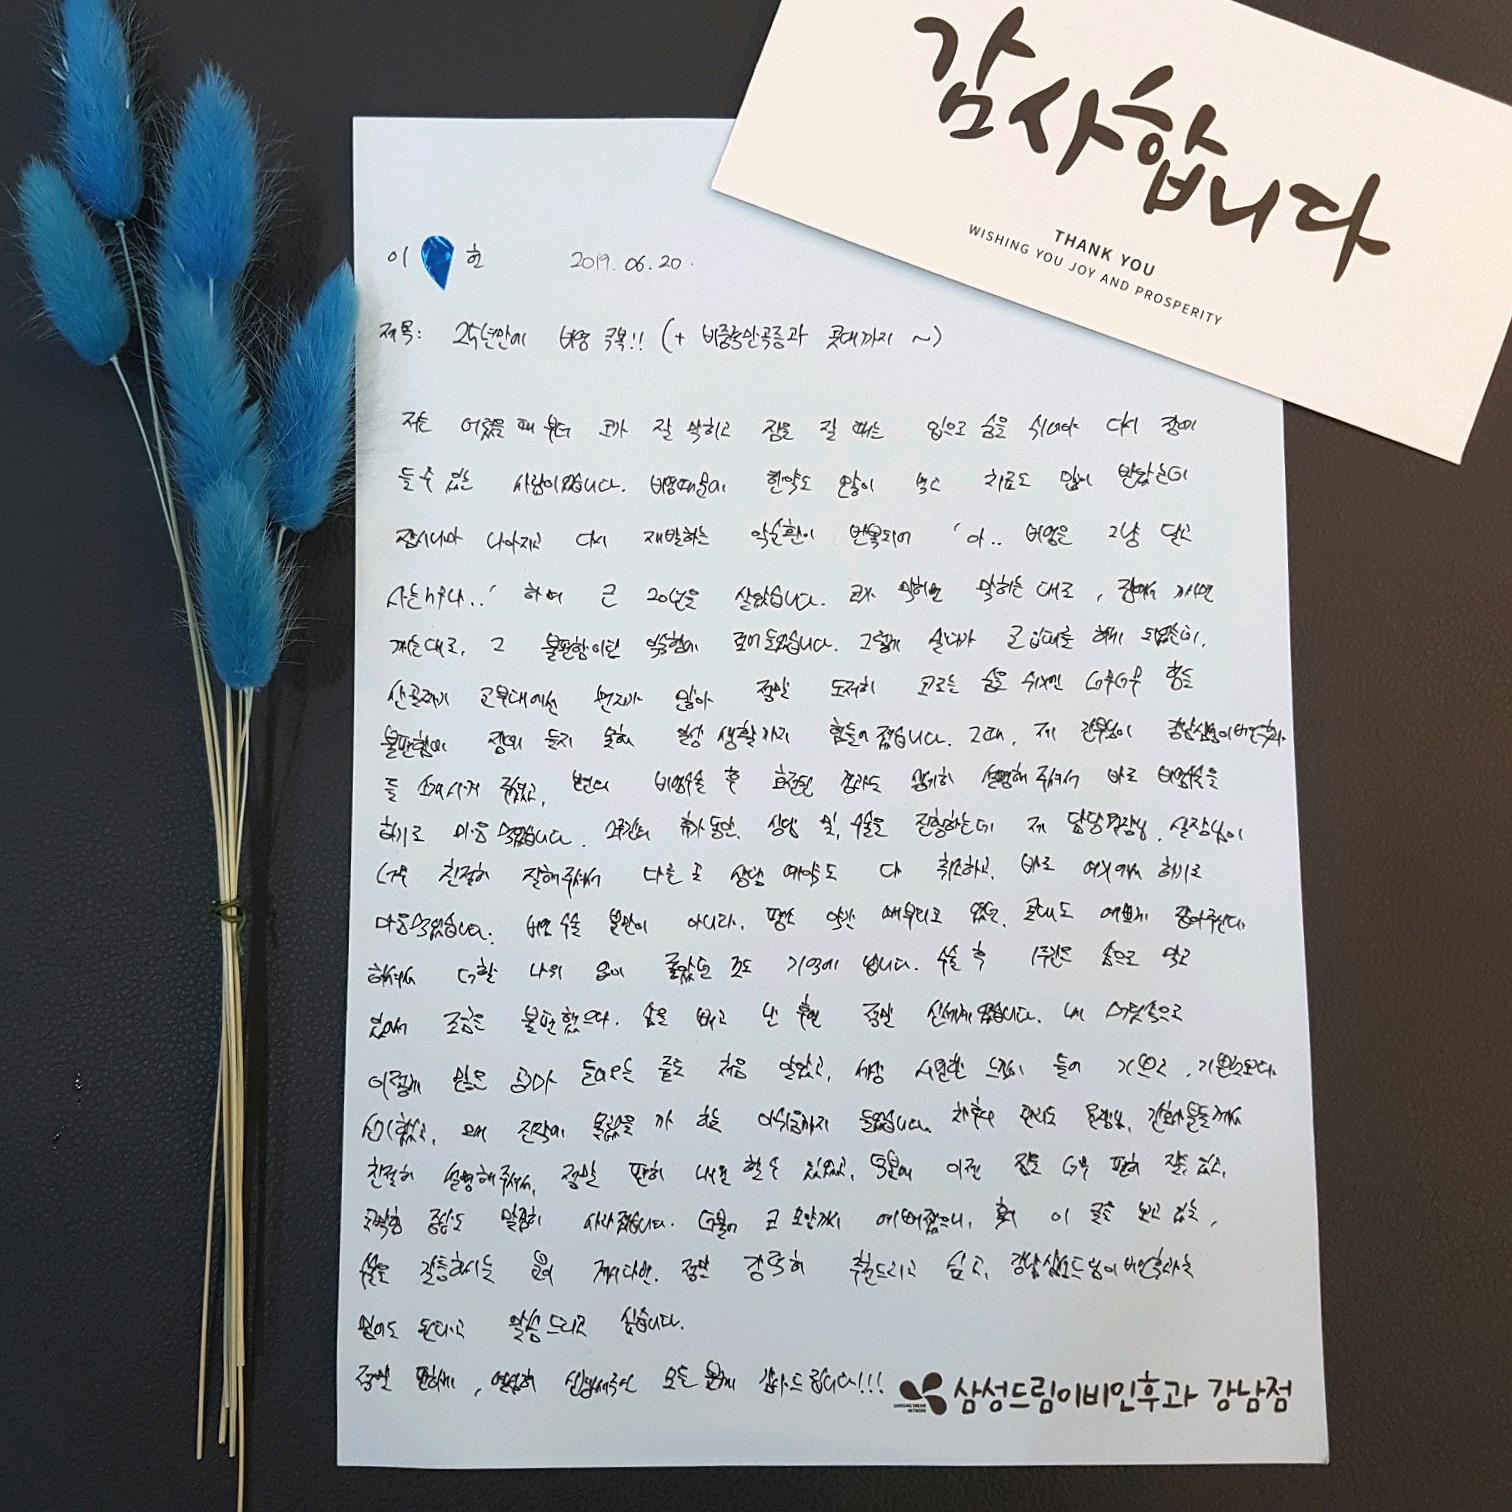 감사합니다
THANK YOU
WISHING YOU JOY AND PROSPERITY
이 현 2019. 06. 20.
제목: 25년만에 비염 극복!! (+ 비중격만곡증과 콧대까지 ~)
저는 어렸을 때 부터 코가 잘 막히고 잠을 잘 때는 입으로 숨을 쉬어야 다시 잠에
들 수 있는 사람이었습니다. 비염때문에 한약도 많이 먹고 치료도 많이 받았는데
잠시나마 나아지고 다시 재발하는 악순환이 반복되어 '아.. 비염은 그냥 달고
사는거구나..' 하며 근 20년을 살았습니다. 코가 막히면 막히는대로, 잠에서 깨면
깨는대로, 그 불편함이란 익숙함에 물들었습니다. 그렇게 살다가 군입대를 하게 되었는데,
산골짜기 군부대에선 먼지가 많아 정말 도저히 코로는 숨을 쉬기엔 너무너무 힘들고
불편함에 잠에 들지 못해 일상 생활까지 힘들어 졌습니다. 그때, 제 간부님이 강남삼성이비인후과
를 소개시켜 주셨고, 본인의 비염수술 후 호전된 경과도 상세히 설명해 주셔서 바로 비염수술을
하기로 마음 먹었습니다. 2주간의 휴가 동안, 상담 및, 수술을 진행하는데 제 담당 원장님, 실장님이
너무 친절히 잘해주셔서 다른 곳 상담 예약도 다 취소하고, 바로 여기에서 하기로
마음먹었습니다. 비염 수술 뿐만이 아니라, 평소 약간 매부리코 였던, 콧대도 예쁘게 잡아주신다
하셔서 더할 나위 없이 좋았던 것도 기억에 납니다. 수술 후 1주간은 솜으로 막고
있어서 조금은 불편했으나, 솜을 빼고 난 후엔 정말 신세계였습니다. 내 콧속으로
이렇게 많은 공기가 들어오는 줄도 처음 알았고, 세상 시원한 느낌이 들어 기쁘고, 기쁜것보다
신기했고, 왜 진작에 몰랐을 까 하는 아쉬움까지 들었습니다. 차후의 관리도 원장님, 간호사분들께서
친절히 설명해 주셔서, 정말 편히 내원 할 수 있었고, 덕분에 이젠 잠을 너무 편히 잘 수 있고,
코막힘 증상도 말끔히 사라졌습니다. 더불어 코 모양까지 예뻐졌으니, 혹시 이 글을 보고 있는,
수술을 갈등하시는 분이 계시다면, 정말 강력히 추천드리고 싶고, 강남삼성드림이비인후과는
믿어도 된다고 말씀드리고 싶습니다.
정말 편하게, 열심히 신경써주신 모든 분께 감사드립니다!!!
SAMSUNG DREAM
NETWORK
삼성드림이비인후과 강남점